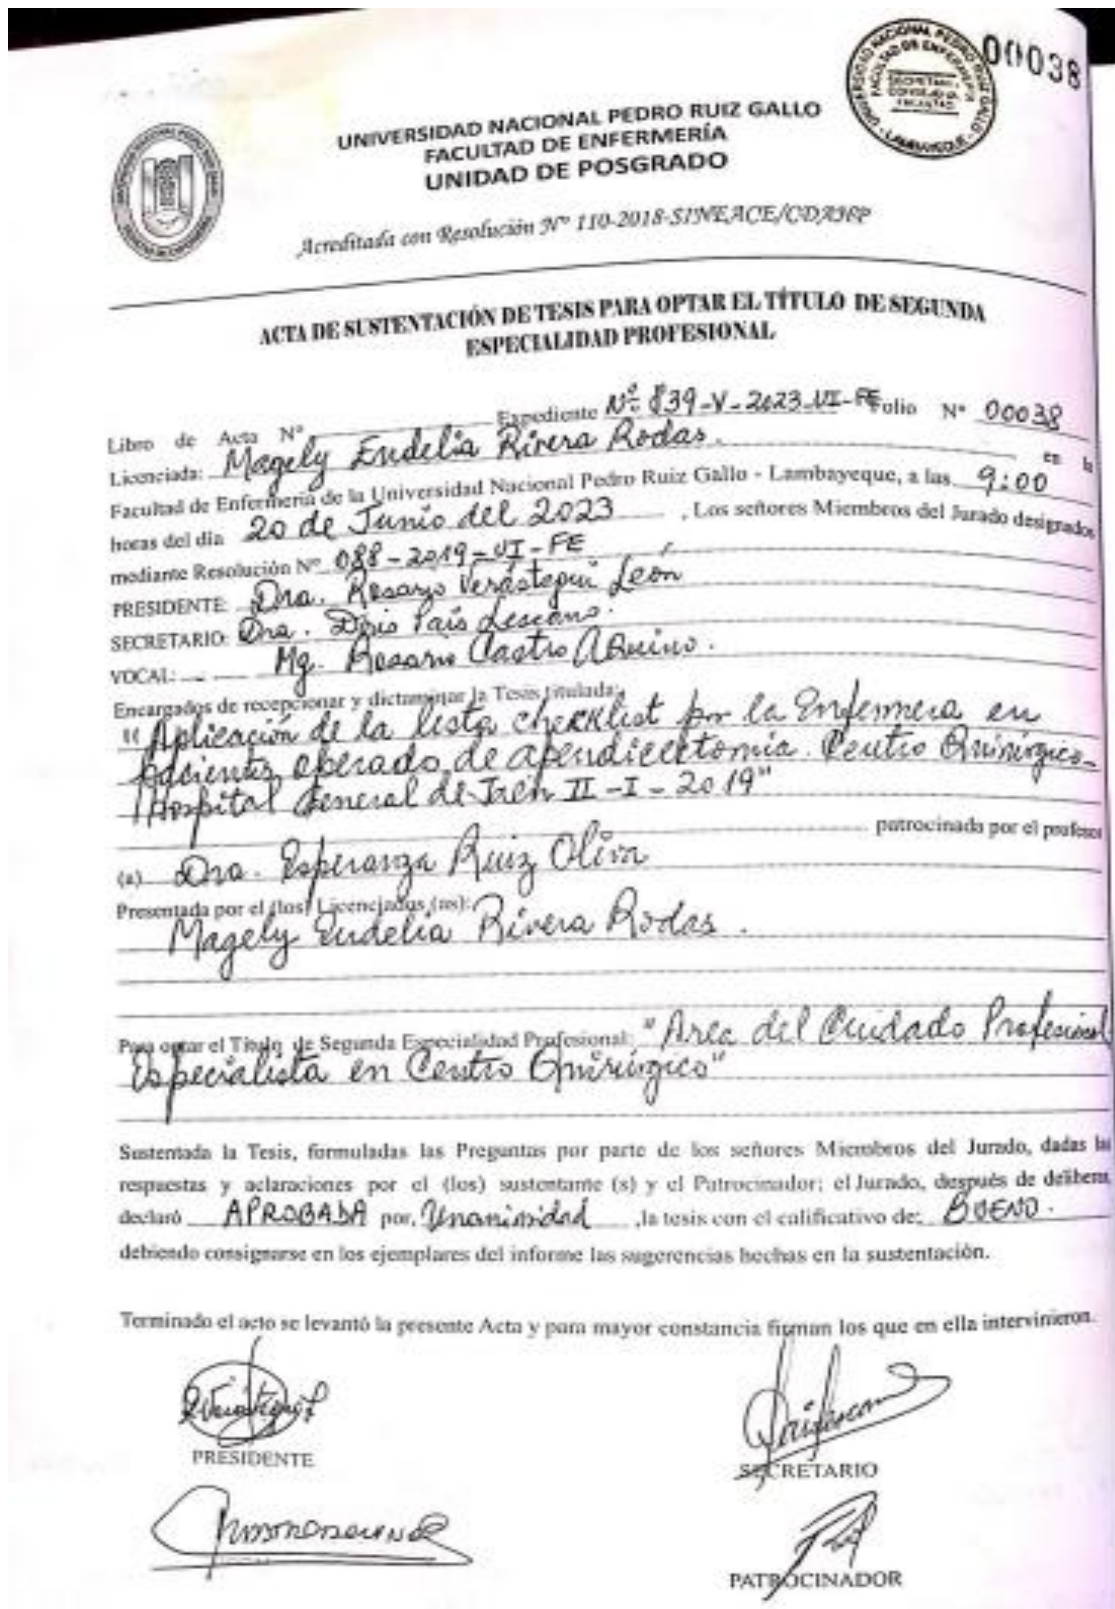 00038
UNIVERSIDAD NACIONAL PEDRO RUIZ GALLO
FACULTAD DE ENFERMERÍA
SECRETARIA
CONSEJO DE
FACULTAD
LAMBAYEQUE
UNIVERSIDAD NACIONAL PEDRO RUIZ GALLO
FACULTAD DE ENFERMERÍA
UNIDAD DE POSGRADO
Acreditada con Resolución N° 110-2018-SINEACE/CDAHP
ACTA DE SUSTENTACIÓN DE TESIS PARA OPTAR EL TÍTULO DE SEGUNDA
ESPECIALIDAD PROFESIONAL
Libro de Acta N° Expediente Nº 839-V-2023-VI-FE Folio N° 00038
Licenciada: Magely Eudelia Rivera Rodas. en la
Facultad de Enfermería de la Universidad Nacional Pedro Ruiz Gallo - Lambayeque, a las 9:00
horas del día 20 de Junio del 2023, Los señores Miembros del Jurado designados
mediante Resolución N° 088-2019-VI-FE
PRESIDENTE: Dra. Rosario Verástegui León
SECRETARIO: Dra. Doris País Lescano.
VOCAL: Mg. Rosario Castro Aquino.
Encargados de recepcionar y dictaminar la Tesis titulada:
"Aplicación de la lista checklist por la Enfermera en
paciente operado de apendicectomía. Centro Quirúrgico-
Hospital General de Jaén II-I-2019"
patrocinada por el profesor
(a) Dra. Esperanza Ruiz Oliva
Presentada por el (los) Licenciados (as):
Magely Eudelia Rivera Rodas.
Para optar el Título de Segunda Especialidad Profesional: "Area del Cuidado Profesional
Especialista en Centro Quirúrgico"
Sustentada la Tesis, formuladas las Preguntas por parte de los señores Miembros del Jurado, dadas las
respuestas y aclaraciones por el (los) sustentante (s) y el Patrocinador; el Jurado, después de deliberar,
declaró APROBADA por, Unanimidad, la tesis con el calificativo de: BUENO.
debiendo consignarse en los ejemplares del informe las sugerencias hechas en la sustentación.
Terminado el acto se levantó la presente Acta y para mayor constancia firman los que en ella intervinieron.
PRESIDENTE
SECRETARIO
PATROCINADOR